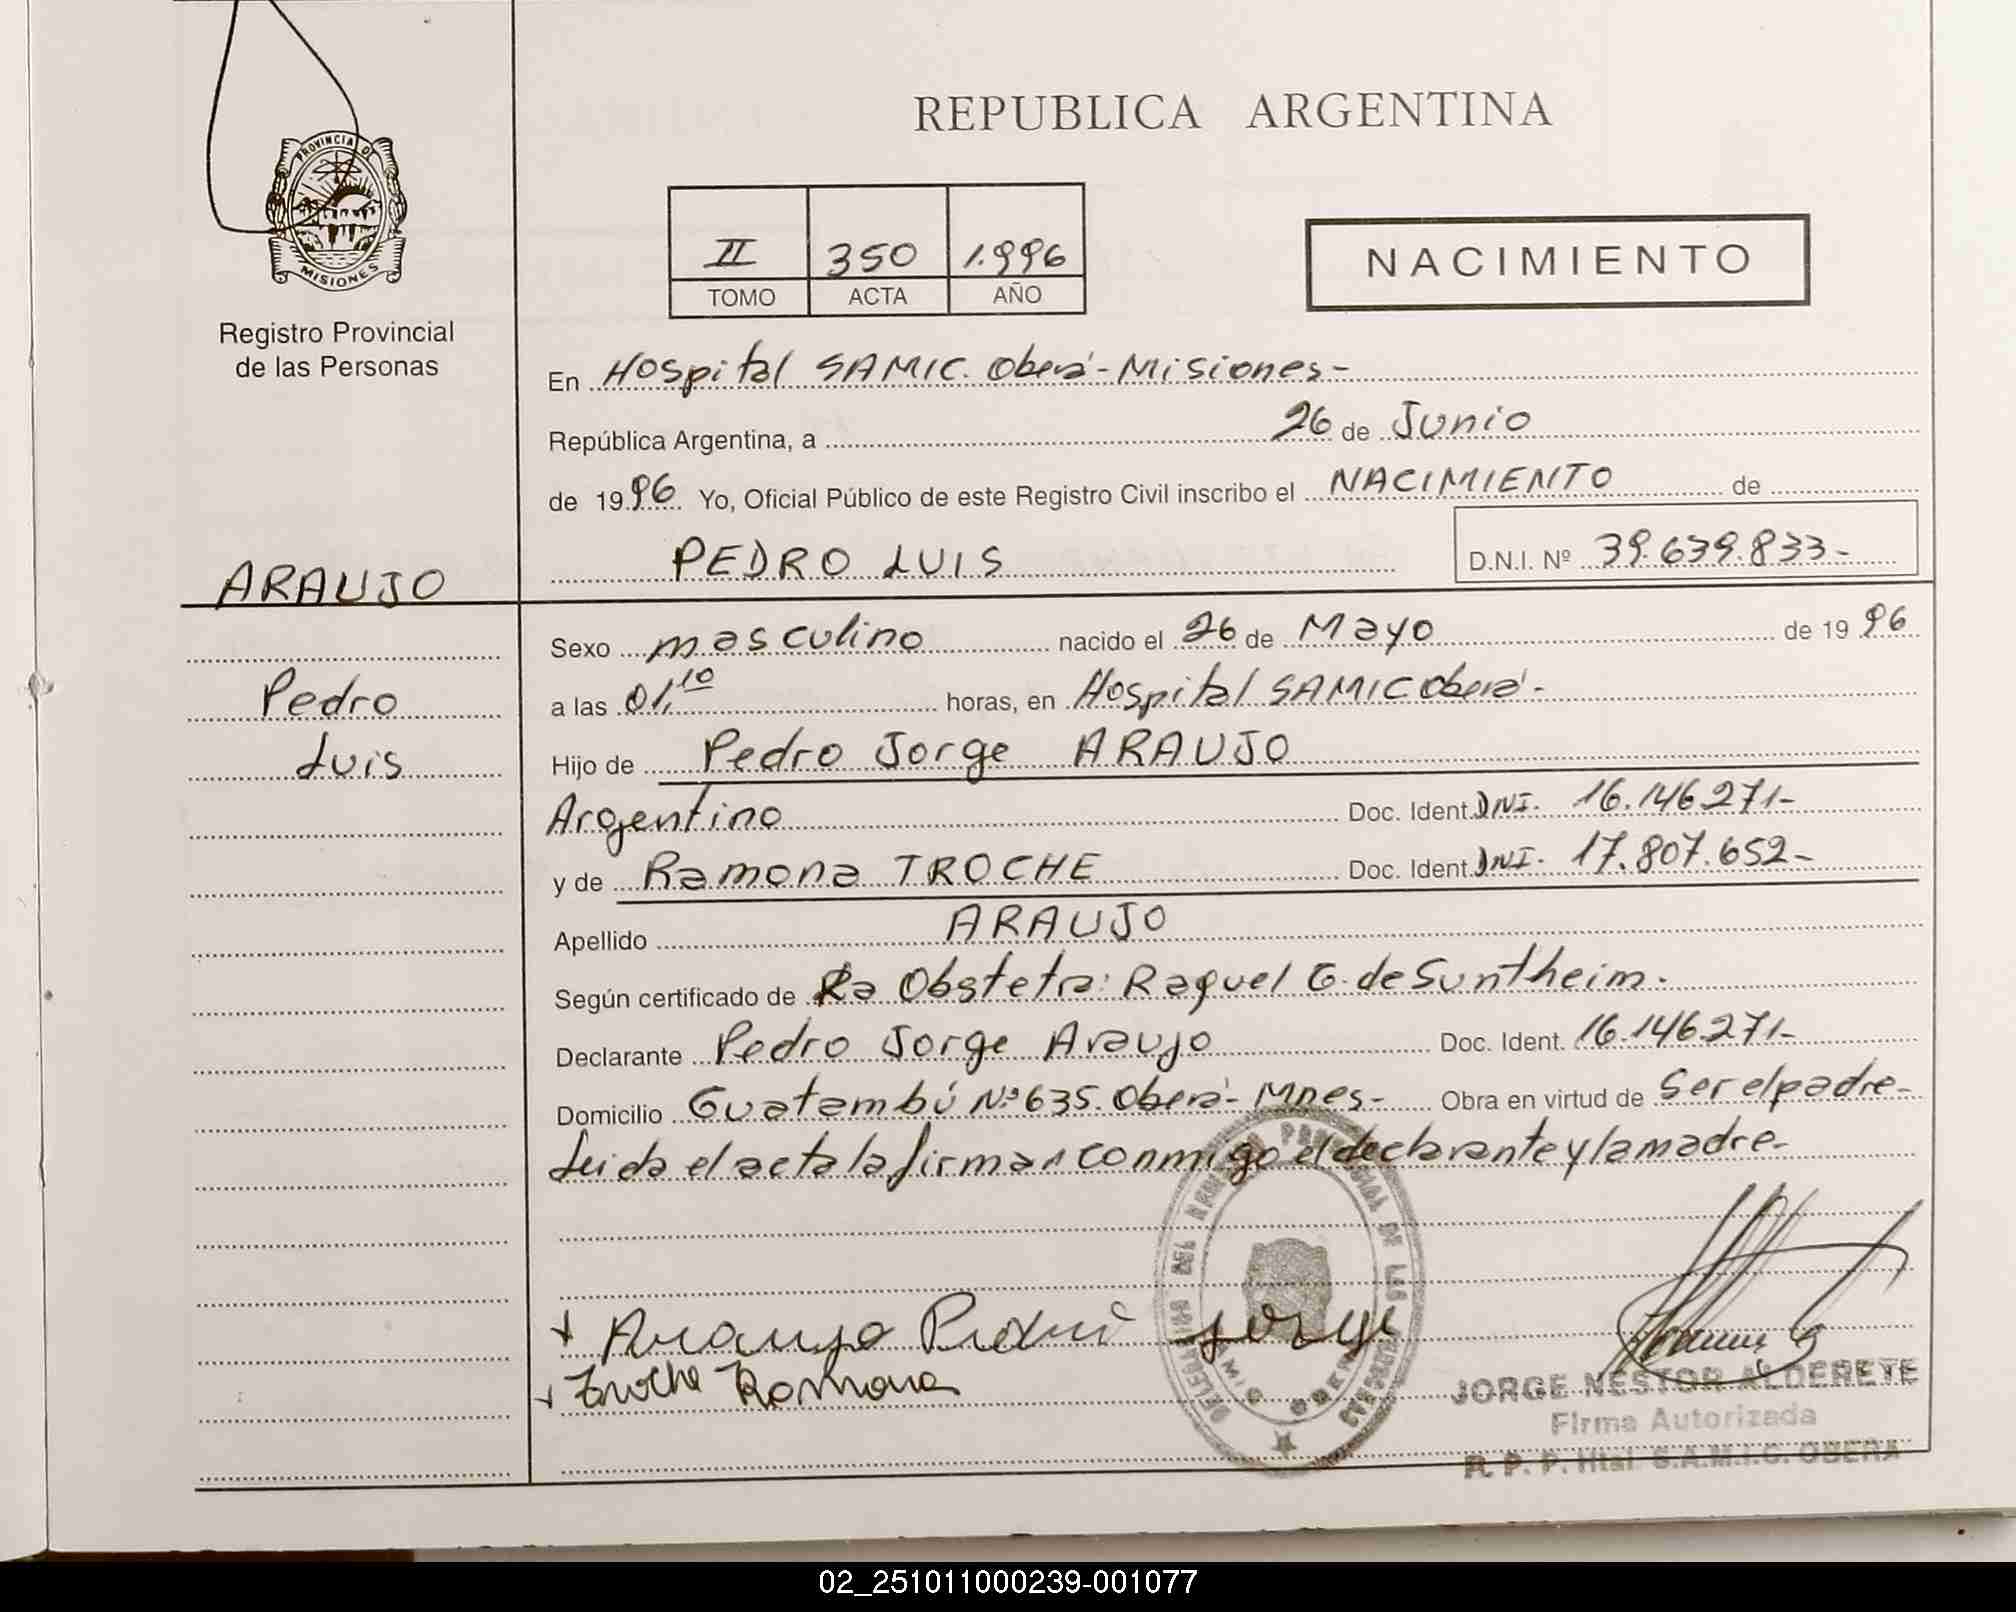 REPUBLICA ARGENTINA
PROVINCIA DE
MISIONES
Registro Provincial
de las Personas
II 350 1.996
TOMO ACTA AÑO
NACIMIENTO
En Hospital SAMIC. Oberá - Misiones -
República Argentina, a 26 de Junio
de 1996 Yo, Oficial Público de este Registro Civil inscribo el NACIMIENTO de
ARAUJO
PEDRO LUIS D.N.I. Nº 39.639.833-
Pedro
Luis
Sexo masculino nacido el 26 de Mayo de 1996
a las 01,10 horas, en Hospital SAMIC Oberá -
Hijo de Pedro Jorge ARAUJO
Argentino Doc. Ident. DNI. 16.146.271-
y de Ramona TROCHE Doc. Ident. DNI. 17.807.652-
Apellido ARAUJO
Según certificado de La Obstetra: Raquel G. de Suntheim.
Declarante Pedro Jorge Araujo Doc. Ident. 16.146.271-
Domicilio Guatambú Nº 635. Oberá - Mnes- Obra en virtud de Ser el padre-
Leida el acta la firman conmigo el declarante y la madre-
Araujo Pedro Jorge
Troche Ramona
JORGE NESTOR ALDERETE
Firma Autorizada
R. P. P. Htal S.A.M.I.C. OBERA
02_251011000239-001077